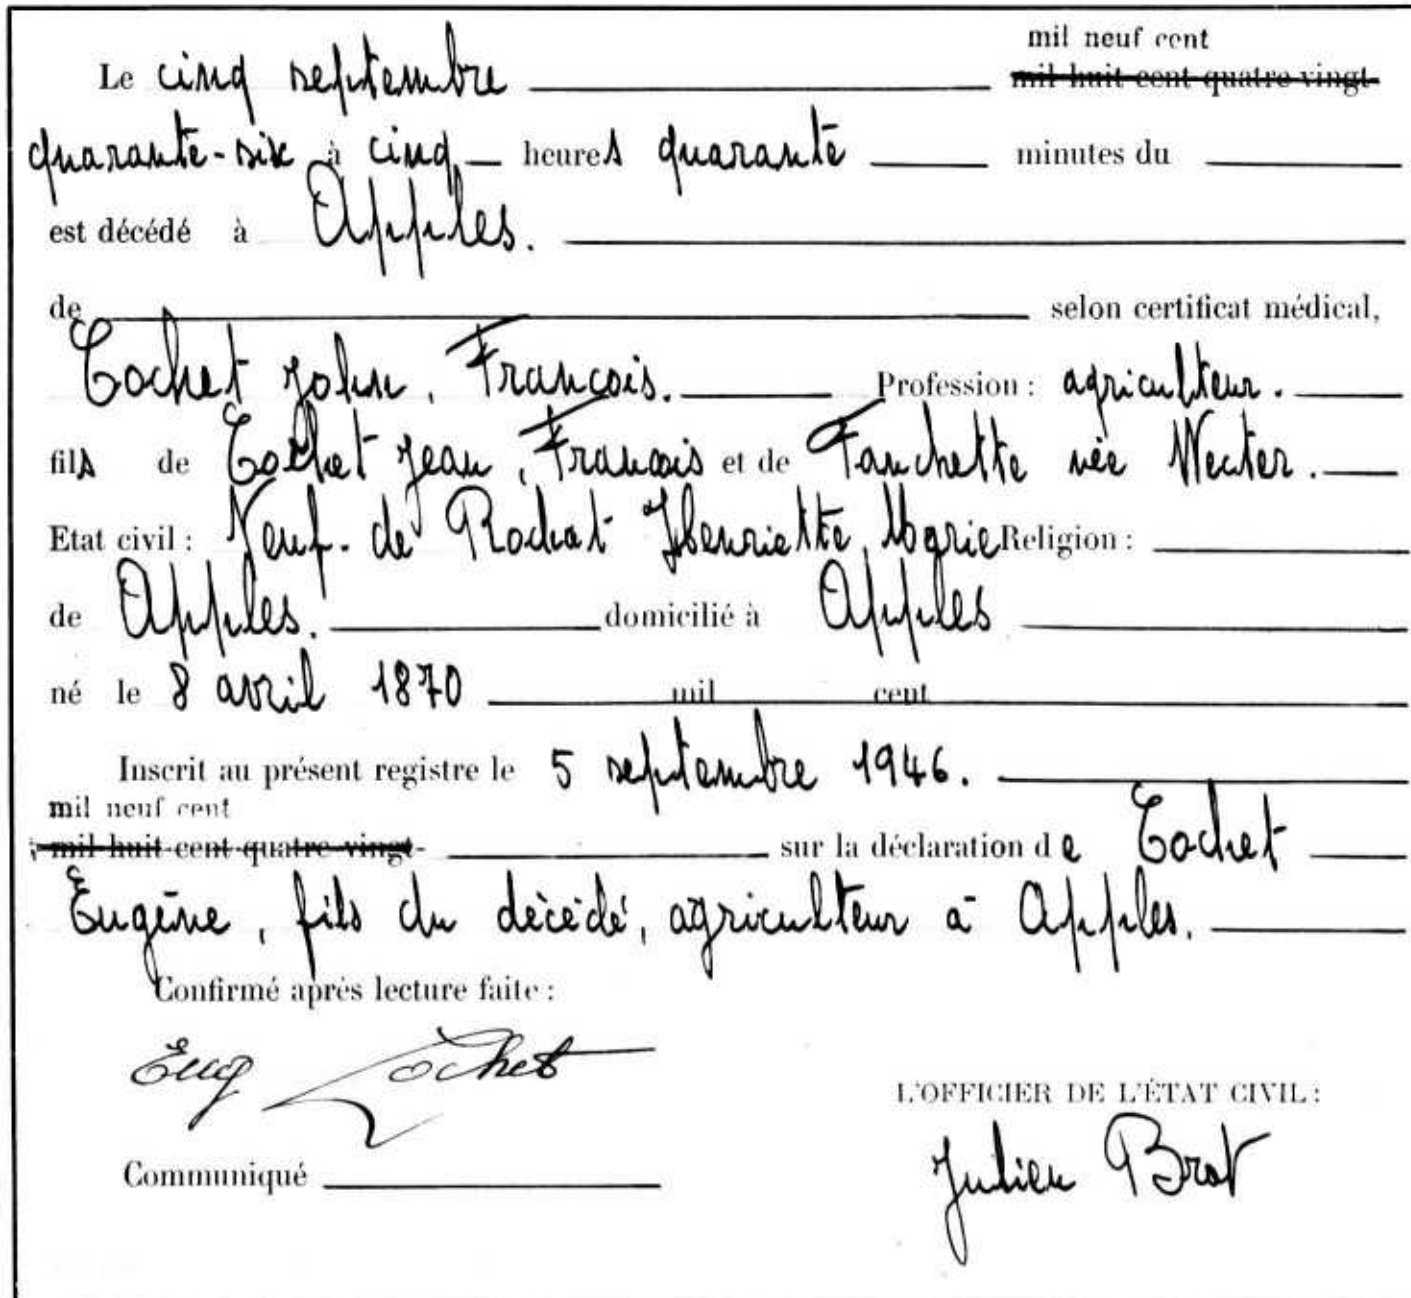 mil neuf cent
Le cinq septembre mil huit cent quatre vingt-
quarante-six à cinq heures quarante minutes du
est décédé à Apples.
de selon certificat médical,
Cochet John, François. Profession : agriculteur.
fils de Cochet Jean, François et de Fanchette née
Etat civil : Veuf. de Rochat Henriette, Marie Religion :
de Apples. domicilié à Apples
né le 8 avril 1870 mil cent
Inscrit au présent registre le 5 septembre 1946.
mil neuf cent
mil huit cent quatre vingt- sur la déclaration de Cochet
Eugène, fils du décédé, agriculteur à Apples.
Confirmé après lecture faite :
Eug Cochet
L'OFFICIER DE L'ÉTAT CIVIL :
Communiqué
Julien Brot